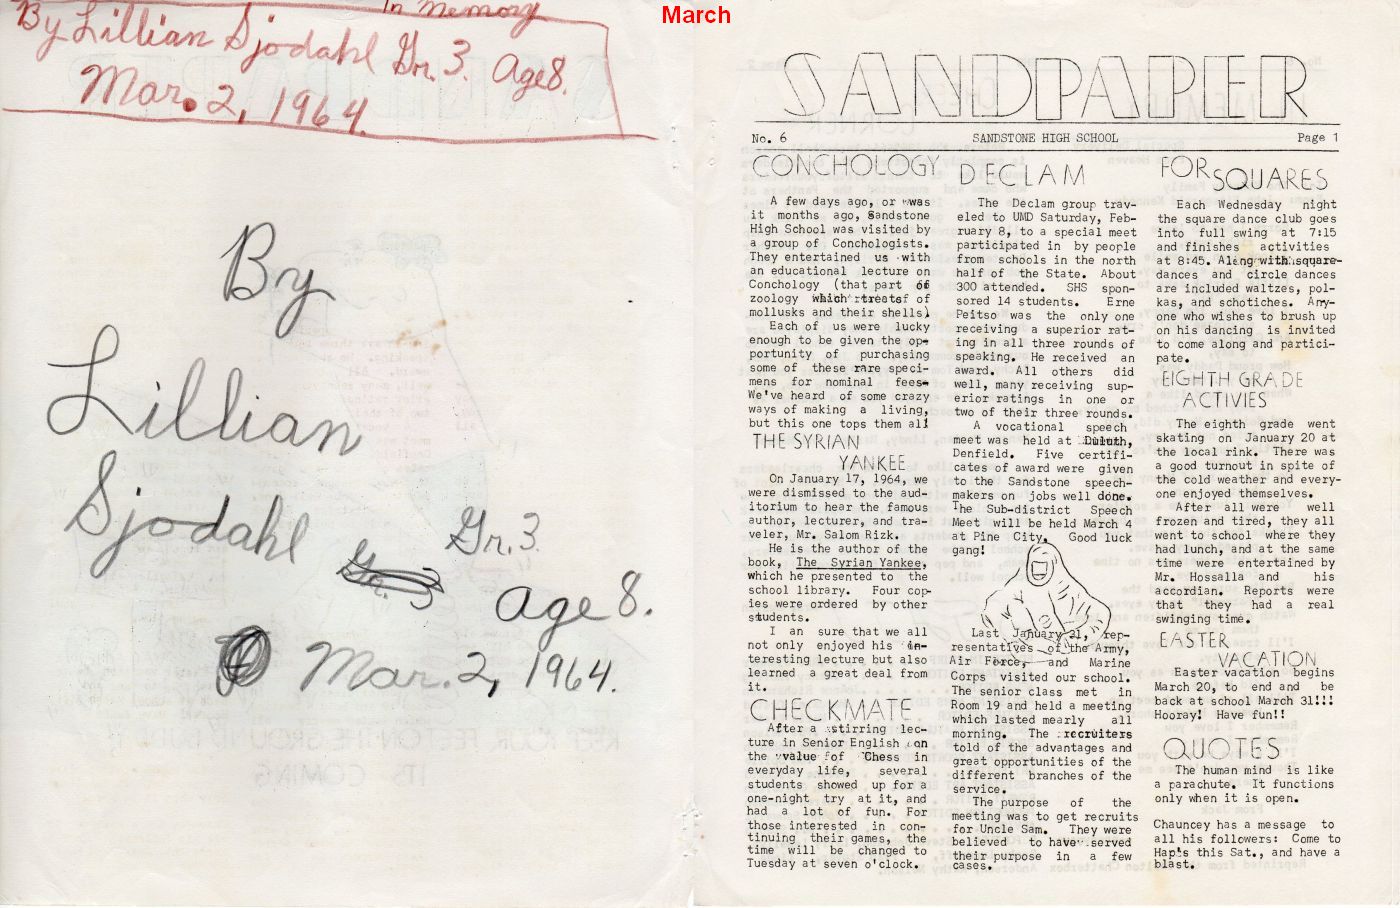 In Memory
By Lillian Sjodahl Gr. 3. Age 8.
Mar. 2, 1964.
By
Lillian
Sjodahl
Gr. 3.
Age 8.
Mar. 2, 1964.
March
SANDPAPER
No. 6 SANDSTONE HIGH SCHOOL Page 1
CONCHOLOGY
A few days ago, or was
it months ago, Sandstone
High School was visited by
a group of Conchologists.
They entertained us with
an educational lecture on
Conchology (that part of
zoology which treats of
mollusks and their shells)
Each of us were lucky
enough to be given the op-
portunity of purchasing
some of these rare speci-
mens for nominal fees.
We've heard of some crazy
ways of making a living,
but this one tops them all
THE SYRIAN
YANKEE
On January 17, 1964, we
were dismissed to the aud-
itorium to hear the famous
author, lecturer, and tra-
veler, Mr. Salom Rizk.
He is the author of the
book, The Syrian Yankee,
which he presented to the
school library. Four cop-
ies were ordered by other
students.
I an sure that we all
not only enjoyed his in-
teresting lecture but also
learned a great deal from
it.
CHECKMATE
After a stirring lec-
ture in Senior English on
the value of Chess in
everyday life, several
students showed up for a
one-night try at it, and
had a lot of fun. For
those interested in con-
tinuing their games, the
time will be changed to
Tuesday at seven o'clock.
DECLAM
The Declam group trav-
eled to UMD Saturday, Feb-
ruary 8, to a special meet
participated in by people
from schools in the north
half of the State. About
300 attended. SHS spon-
sored 14 students. Erne
Peitso was the only one
receiving a superior rat-
ing in all three rounds of
speaking. He received an
award. All others did
well, many receiving sup-
erior ratings in one or
two of their three rounds.
A vocational speech
meet was held at Duluth,
Denfield. Five certifi-
cates of award were given
to the Sandstone speech-
makers on jobs well done.
The Sub-district Speech
Meet will be held March 4
at Pine City. Good luck
gang!
Last January 21, rep-
resentatives of the Army,
Air Force, and Marine
Corps visited our school.
The senior class met in
Room 19 and held a meeting
which lasted mearly all
morning. The recruiters
told of the advantages and
great opportunities of the
different branches of the
service.
The purpose of the
meeting was to get recruits
for Uncle Sam. They were
believed to have served
their purpose in a few
cases.
FOR SQUARES
Each Wednesday night
the square dance club goes
into full swing at 7:15
and finishes activities
at 8:45. Along with square-
dances and circle dances
are included waltzes, pol-
kas, and schotiches. Any-
one who wishes to brush up
on his dancing is invited
to come along and partici-
pate.
EIGHTH GRADE
ACTIVIES
The eighth grade went
skating on January 20 at
the local rink. There was
a good turnout in spite of
the cold weather and every-
one enjoyed themselves.
After all were well
frozen and tired, they all
went to school where they
had lunch, and at the same
time were entertained by
Mr. Hossalla and his
accordian. Reports were
that they had a real
swinging time.
EASTER
VACATION
Easter vacation begins
March 20, to end and be
back at school March 31!!!
Hooray! Have fun!!
QUOTES
The human mind is like
a parachute. It functions
only when it is open.
Chauncey has a message to
all his followers: Come to
Hap's this Sat., and have a
blast.